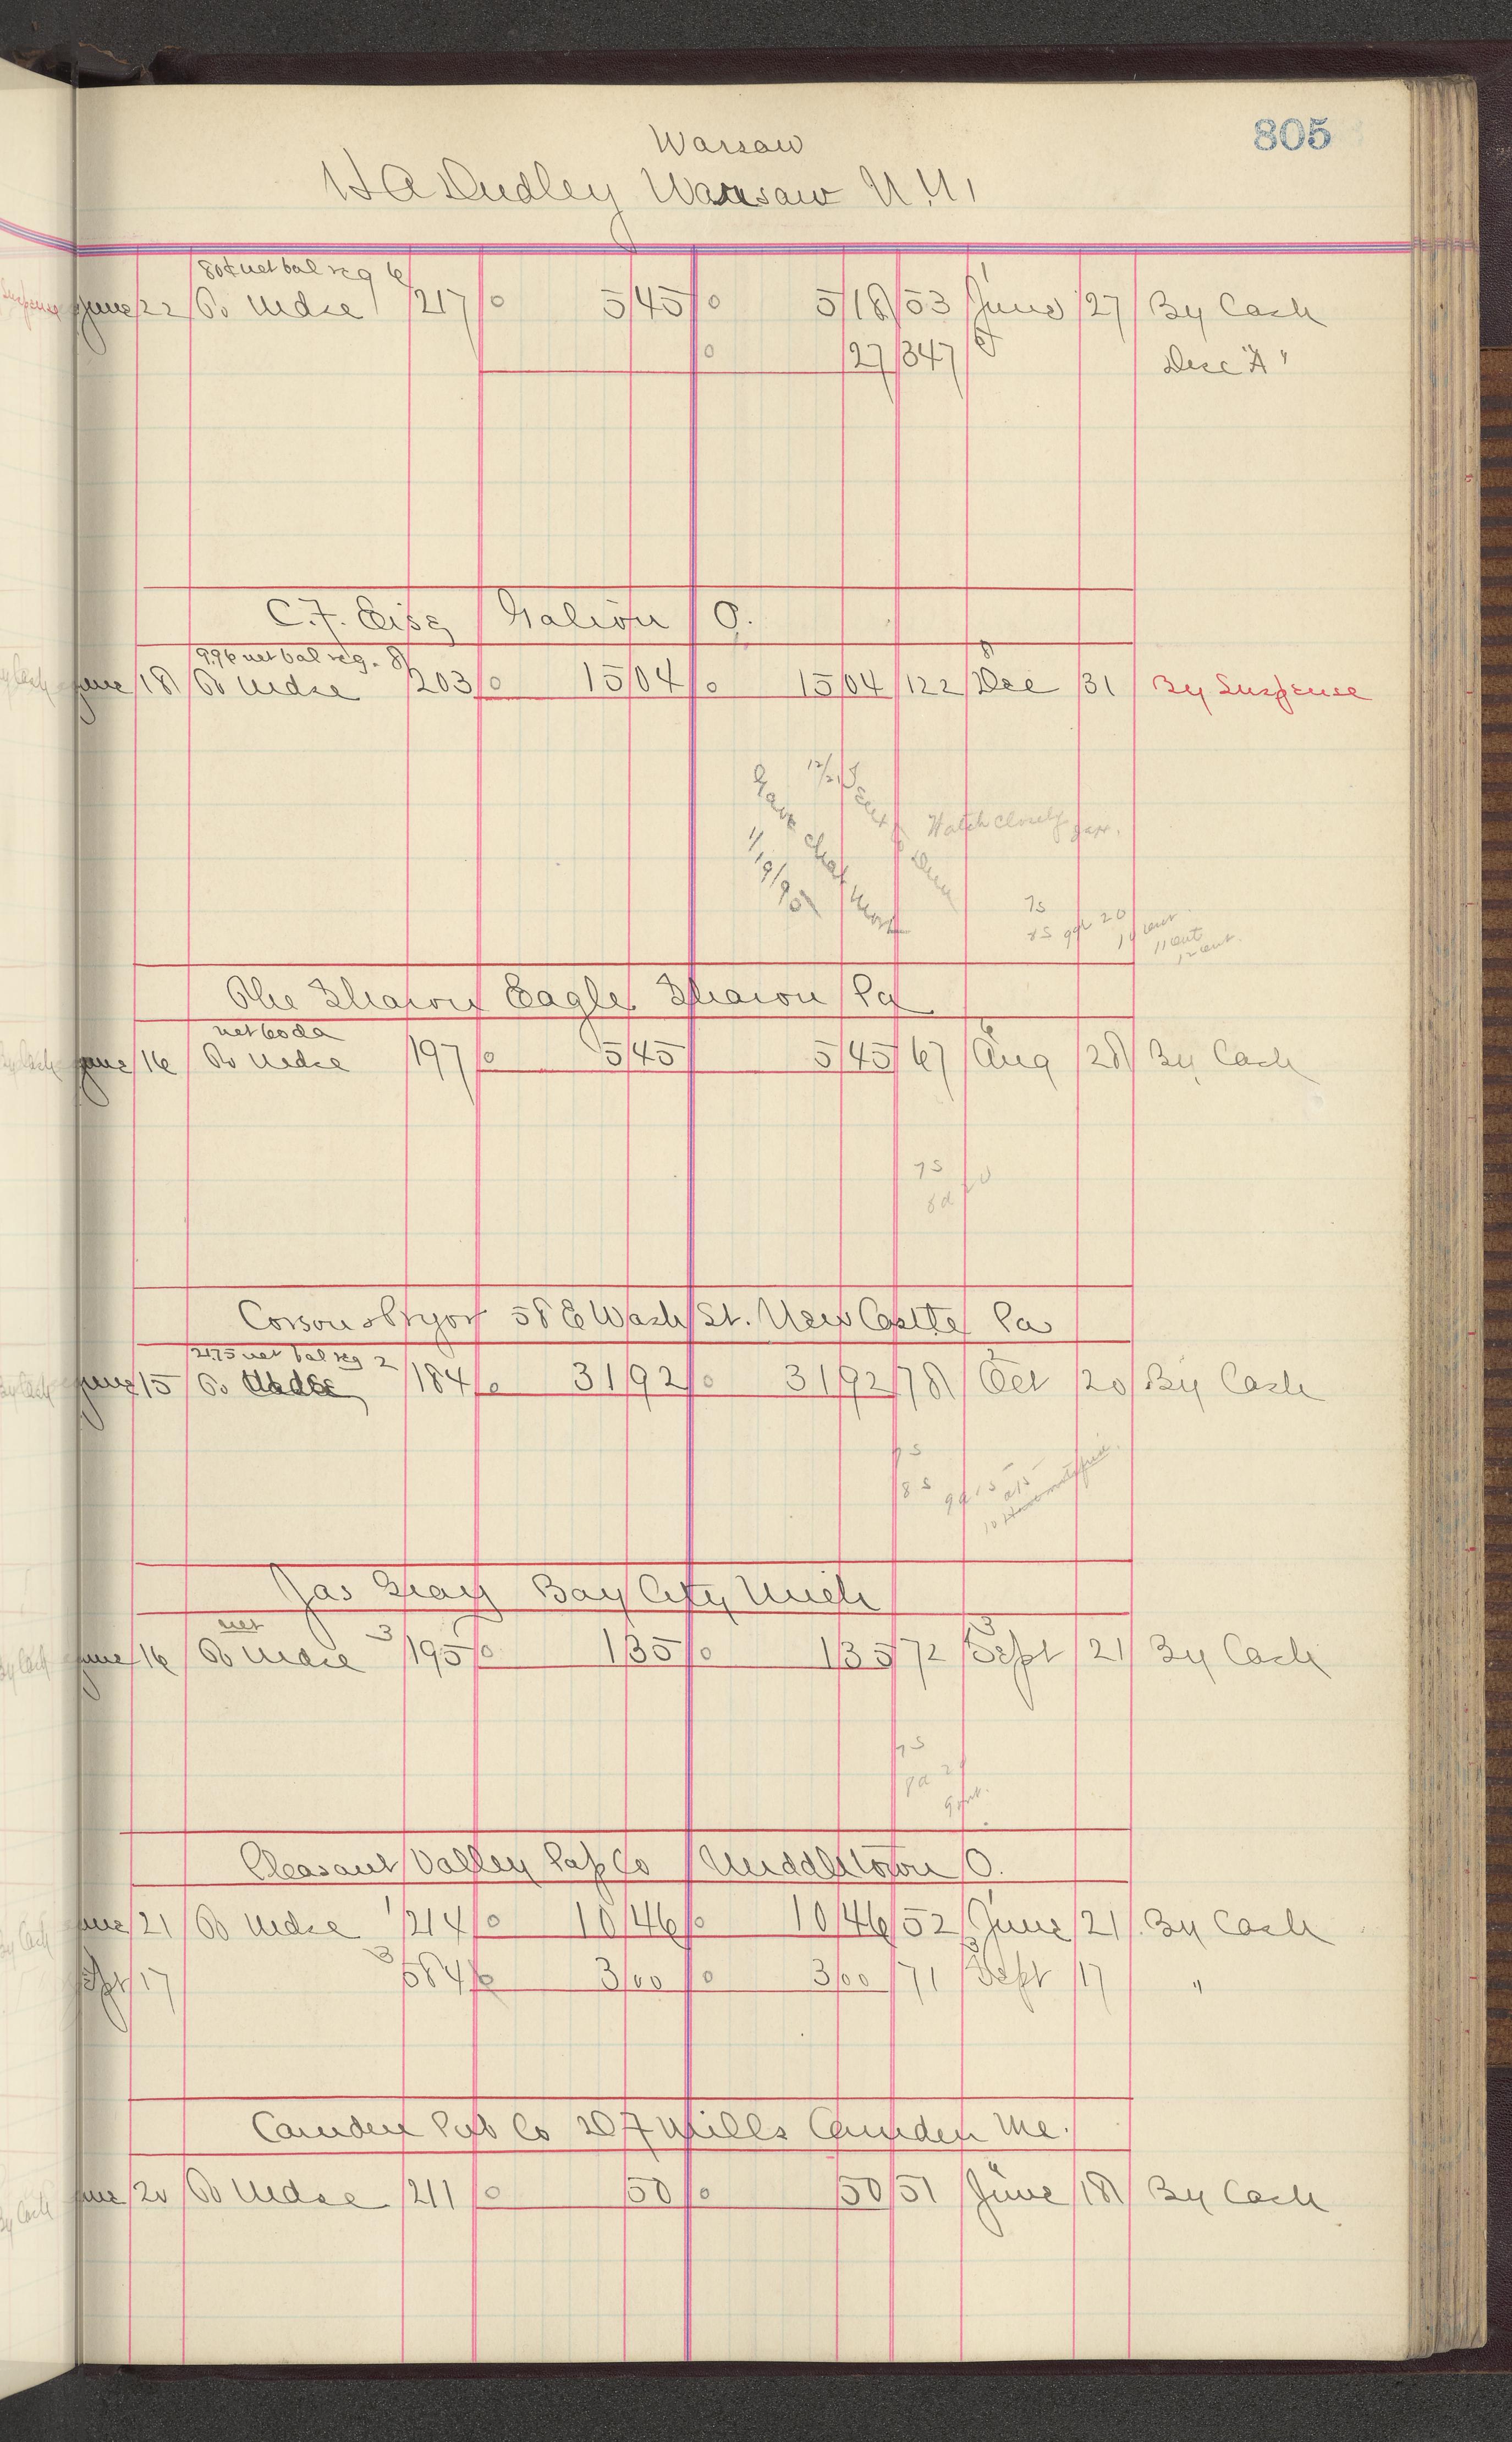 805
Warsaw
H A Dudley Warsaw N.Y.
80¢ net bal reg 6
June 22 To Mdse 217 0 5 45 0 5 18 53 June 27 By Cash
0 27 347 Disc "A"
C. F. Galion O.
9.96 net bal reg. 8
June 18 To Mdse 203 0 15 04 0 15 04 122 Dec 31 By Suspense
12/21 Sent
Gave
Watch closely
1/19/95
7s
The Sharon Eagle Sharon Pa
net
June 16 To Mdse 197 0 5 45 5 45 67 Aug 28 By Cash
7s
8d
Corson & Pryor 58 E Wash St. New Castle Pa
21.75 net bal reg 2
June 15 To Mdse 184 0 31 92 0 31 92 78 Oct 20 By Cash
7s
8s
Jas Gray Bay City Mich
net
June 16 To Mdse 3 195 0 1 35 0 1 35 72 Sept 21 By Cash
7s
Pleasant Valley Pap Co Middletown O.
June 21 To Mdse 1 214 0 10 46 0 10 46 52 June 21 By Cash
Sept 17 3 584 3 00 0 3 00 71 Sept 17 "
Camden Pub Co Mills Camden Me.
June 20 To Mdse 211 0 50 0 50 51 June 18 By Cash